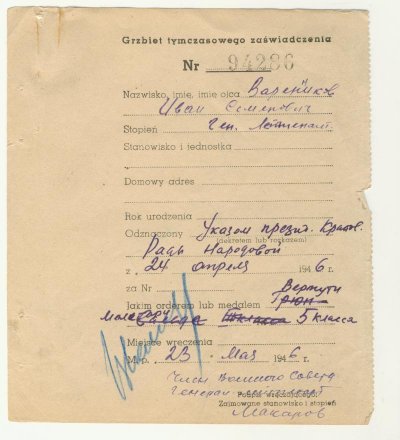 Grzbiet tymczasowego zaświadczenia
Nr 94286
Nazwisko, imię, imię ojca Варенников
Иван Семенович
Stopień Ген. Лейтенант
Stanowisko i jednostka
Domowy adres
Rok urodzenia
Odznaczony Указом презид. Краев.
(dekretem lub rozkazem)
Рады Народовой
z 24 апреля 1946 r.
za Nr Вертути
Jakim orderem lub medalem
5 класса
Miejsce wręczenia
M.p. 23 Мая 1946 r.
Член Военного Совета
Генерал
Zajmowane stanowisko i stopień
Макаров